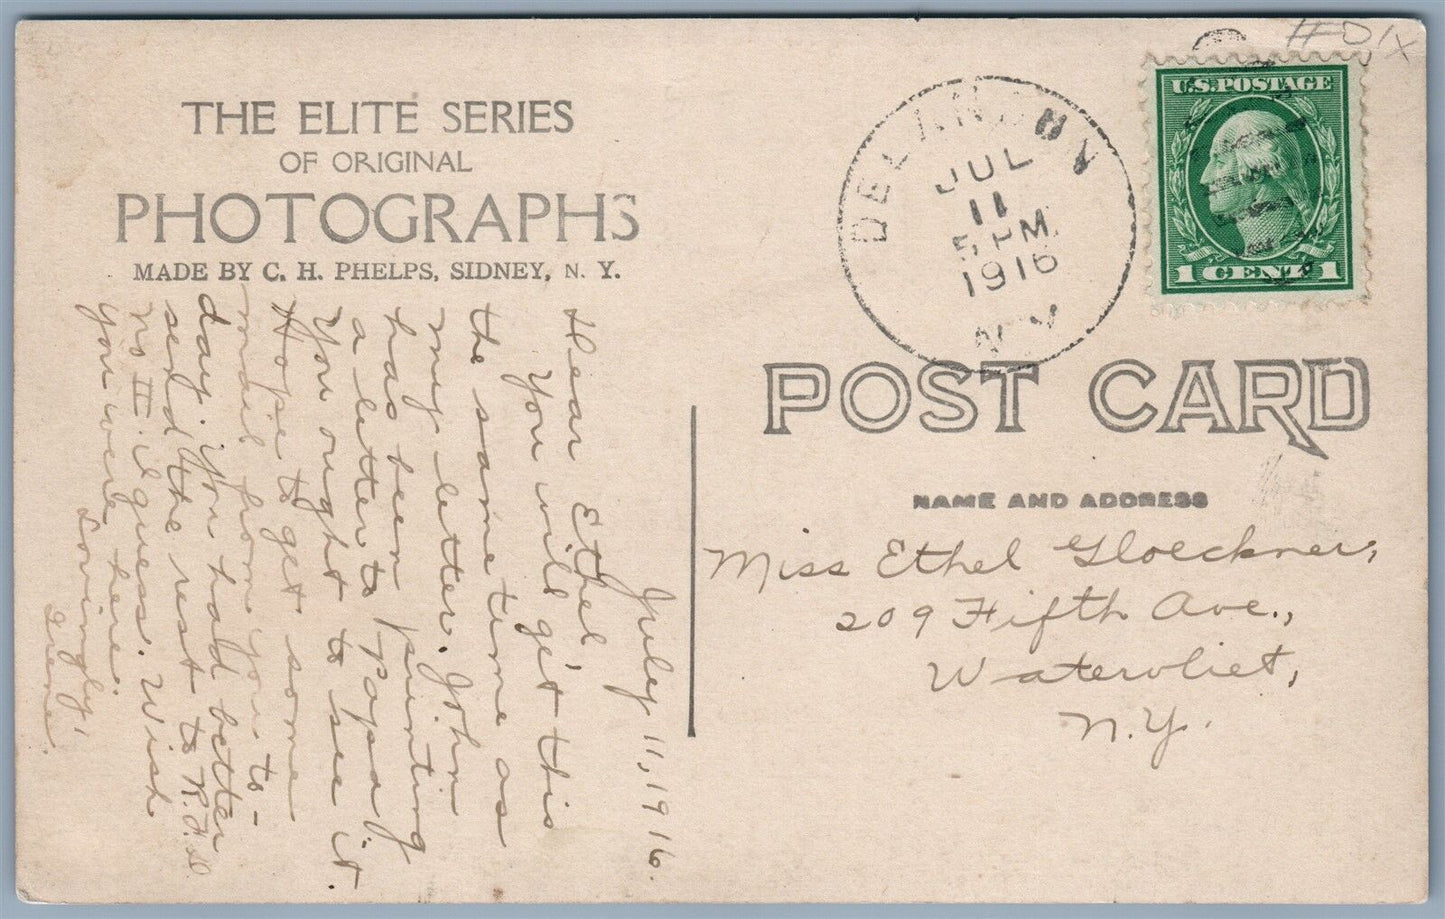 #DIX
THE ELITE SERIES
OF ORIGINAL
PHOTOGRAPHS
MADE BY C. H. PHELPS, SIDNEY, N. Y.
DELANCEY
JUL
11
5 PM
1916
N.Y.
U.S. POSTAGE
1 CENT 1
POST CARD
NAME AND ADDRESS
Miss Ethel Gloeckner,
209 Fifth Ave.,
Watervliet,
N.Y.
July 11, 1916.
Dear Ethel,
You will get this
the same time as
my letter. John
has been printing
a letter to Papa.
You ought to see it.
Hope to get some
mail from you to-
day. You had better
send the rest to R.F.D
No II I guess. Wish
you were here.
Lovingly,
Irene.